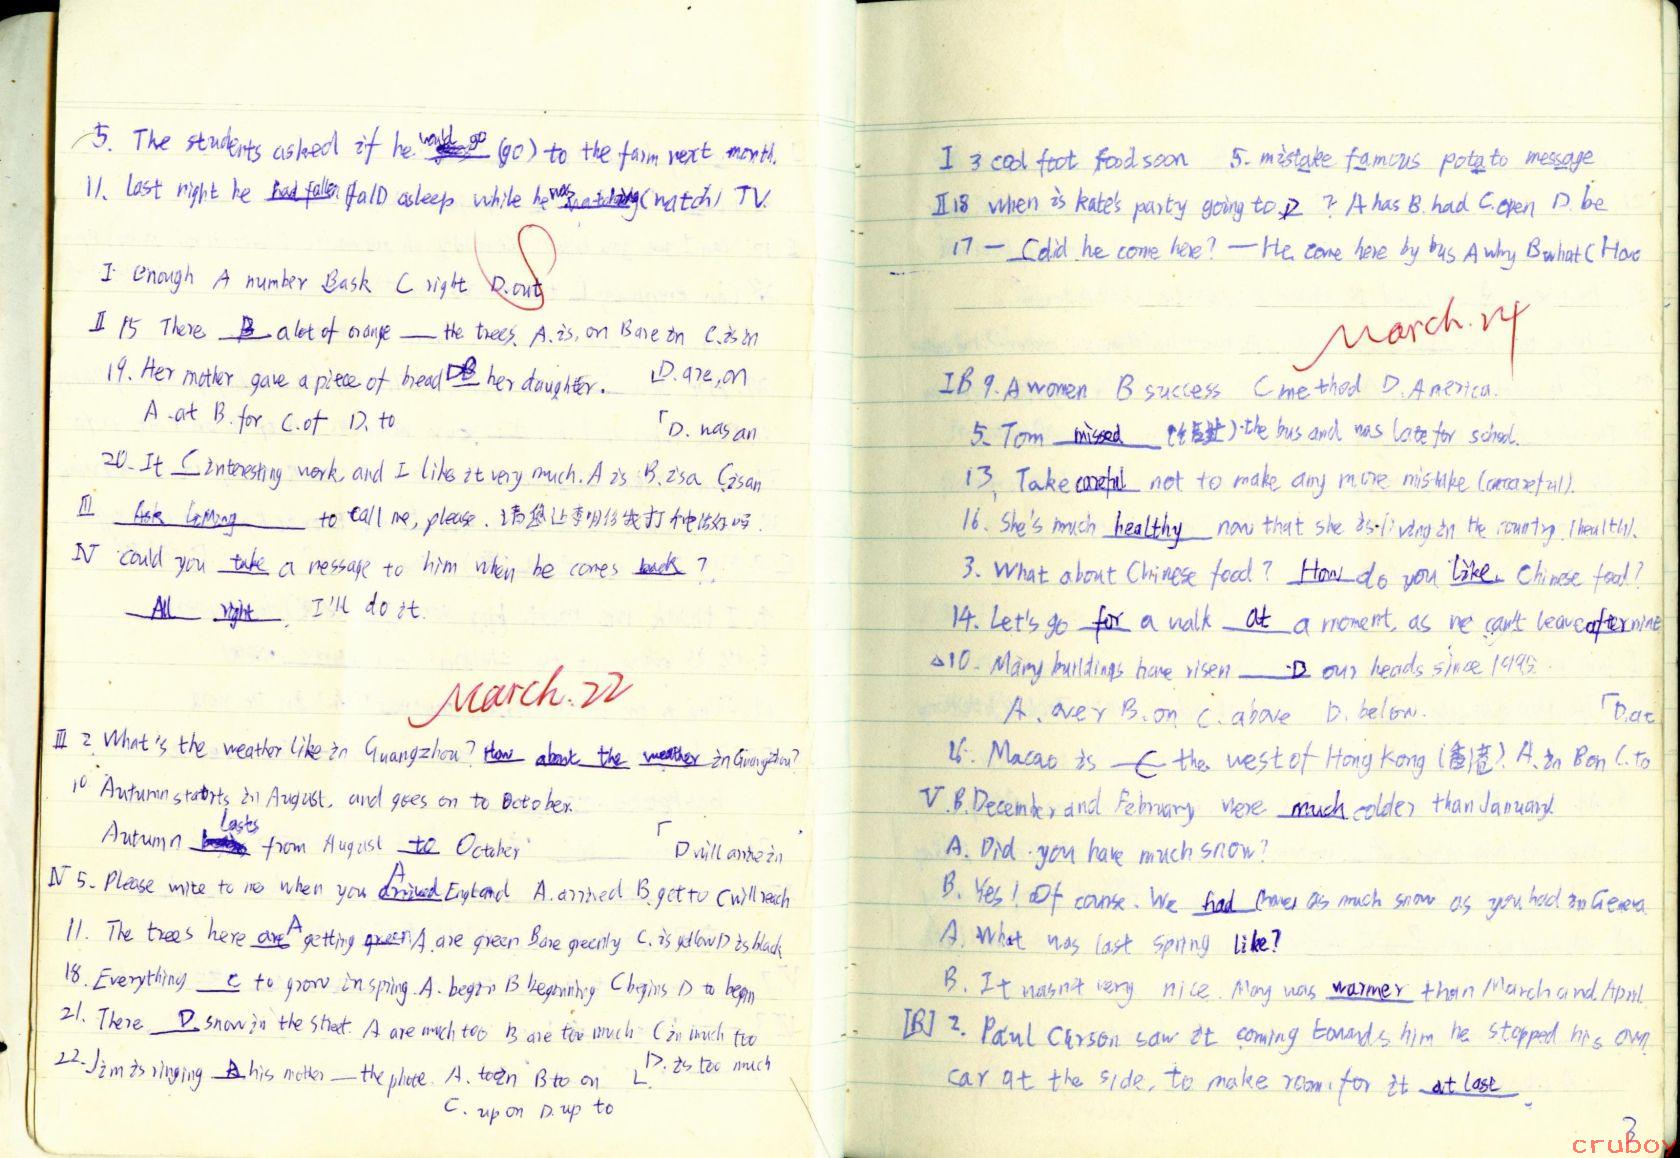 5. The students asked if he would go (go) to the farm next month.
11. last night he had fallen (fall) asleep while he was watching (watch) TV.
I. enough A number B ask C right D. out
II 15 There B a lot of orange — the trees. A. is, on B are in C. is in
D. are, on
19. Her mother gave a piece of bread DB her daughter.
A. at B. for C. of D. to
D. was an
20. It C interesting work, and I like it very much. A is B. is a C is an
III Ask LiMing to call me, please. 请您让李明给我打个电话好吗.
IV could you take a message to him when he comes back ?
All right. I'll do it.
March. 22
III 2. What's the weather like in Guangzhou? How about the weather in Guangzhou?
10 Autumn starts in August, and goes on to October.
Autumn lasts from August to October
D will arrive in
IV 5. Please write to me when you arrived A England A. arrived B. get to C will reach
11. The trees here are A getting green A. are green B are greenly C. is yellow D is black
18. Everything C to grow in spring. A. begin B beginning C begins D to begin
21. There D. snow in the street. A are much too B are too much C is much too
D. is too much
22. Jim is ringing A his mother — the phone. A. to in B to on
C. up on D. up to
I 3 cool foot food soon 5. mistake famous potato message
II 18 when is kate's party going to D ? A has B. had C. open D. be
17 — C did he come here? — He come here by bus A why B what C How
March. 24
I B 9. A women B success C method D. America.
5. Tom missed the bus and was late for school.
13. Take careful not to make any more mistake (careful).
16. She's much healthy now that she is living in the country. (health).
3. What about Chinese food? How do you like. Chinese food?
14. Let's go for a walk at a moment, as we can't leave after nine
△10. Many buildings have risen D our heads since 1995.
A. over B. on C. above D. below.
D. at
16. Macao is C the west of Hong Kong (香港). A. in B on C. to
V. B. December and February were much colder than January.
A. Did you have much snow?
B. Yes! Of course. We had (have) as much snow as you had in Geneva
A. What was last spring like?
B. It wasn't very nice. May was warmer than March and April.
[B] 2. Paul Carson saw it coming towards him he stopped his own
car at the side, to make room for it at last.
3
cruboy